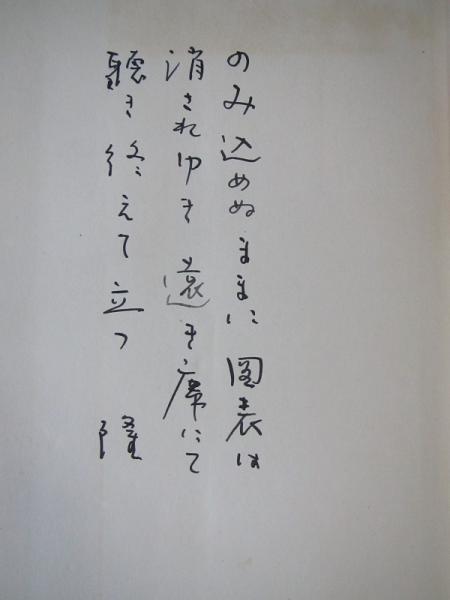 のみ込めぬままに圖表は
消されゆき遠き席にて
聽き終えて立つ 隆